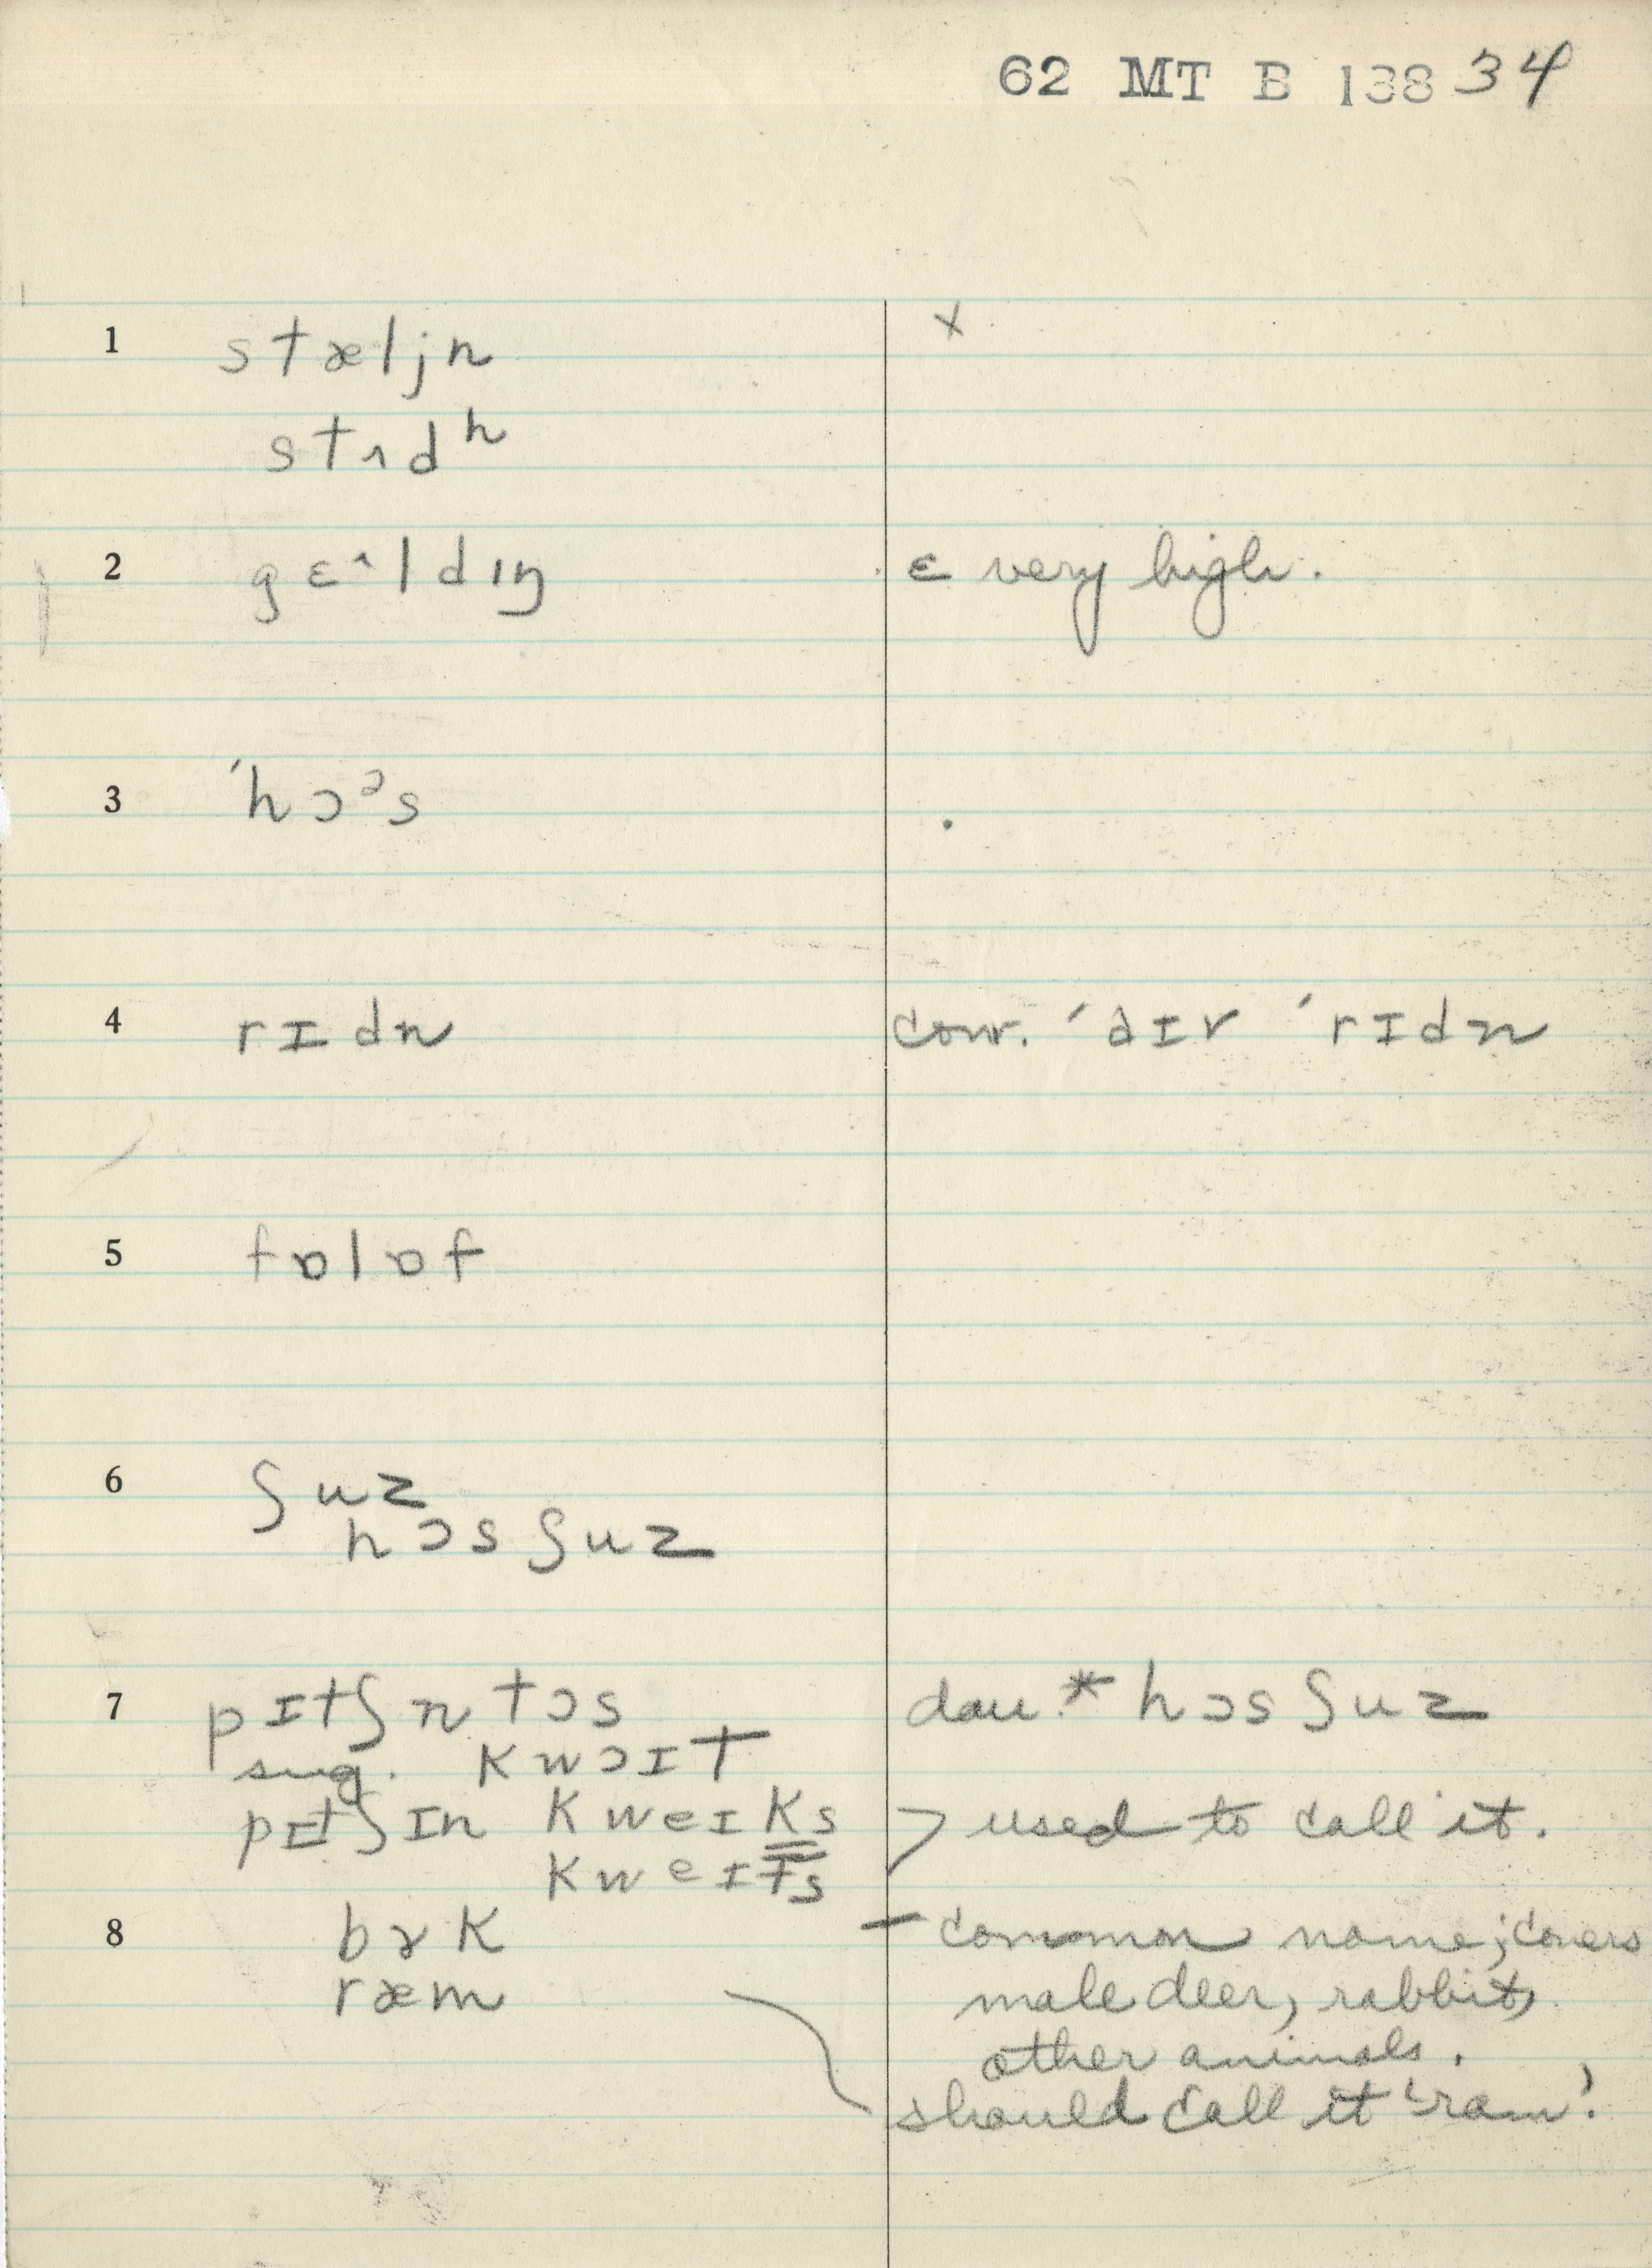 62 MT B 138 34
1 stæljn x
stʌdʰ
2 gɛ˄ldɪŋ ɛ very high.
3 ˈhɔᵊs .
4 rɪdn conv. ˈaɪr ˈrɪdn
5 fɒlɒf
6 ʃuz
hɔsʃuz
7 pɪtʃn tɔs dau.* hɔsʃuz
sug. kwɔɪt
pɪtʃɪn kweɪks > used to call it.
kweɪts
8 bɤk – common name; covers
ræm male deer, rabbit,
other animals.
should call it 'ram'.